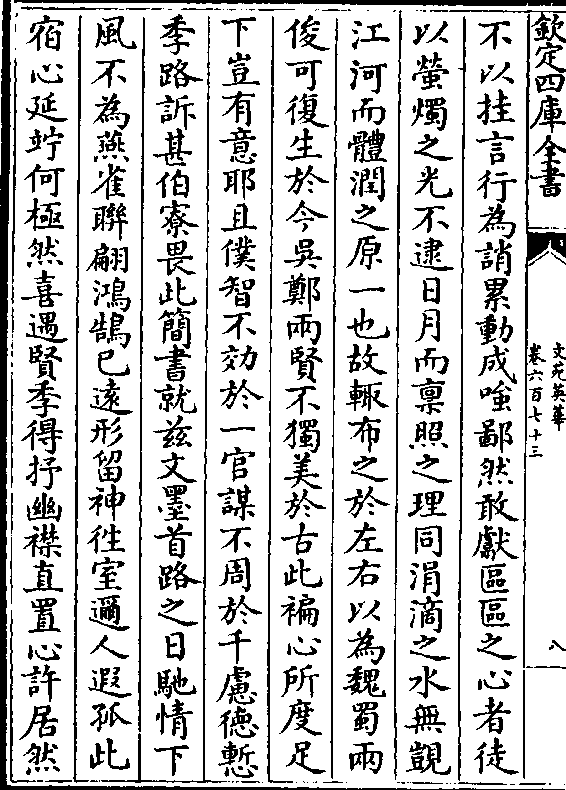 欽定四庫全書
文苑英華
卷六百七十三
八
不以挂言行為誚累動成嗤鄙然敢獻區區之心者徒
以螢燭之光不逮日月而禀照之理同涓滴之水無覬
江河而體潤之原一也故輙布之於左右以為魏蜀兩
俊可復生於今吳鄭兩賢不獨美於古此褊心所度足
下豈有意耶且僕智不効於一官謀不周於千慮徳慙
季路訴甚伯寮畏此簡書就兹文墨首路之日馳情下
風不為燕雀聯翩鴻鵠已遠形留神徃室邇人遐孤此
宿心延竚何極然喜遇賢季得抒幽襟直置心許居然